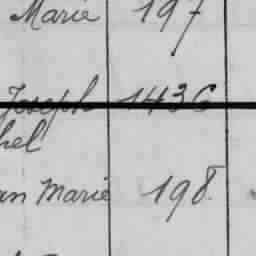 Marie 197
Joseph 1436
hel
an Marie 198.